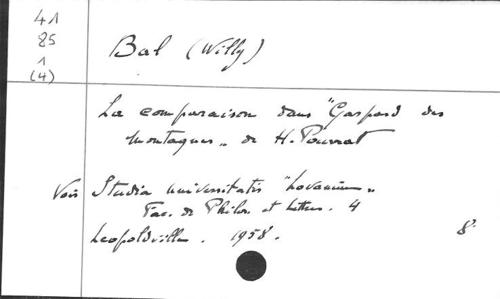 41
85
1
(4)
Bal (Willy)
La comparaison dans "Gaspard des
montagnes" de H. Pourrat
Voir Studia universitatis "Lovanium"
Fac. de Philos. et Lettres. 4
Leopoldville. 1958. 8°